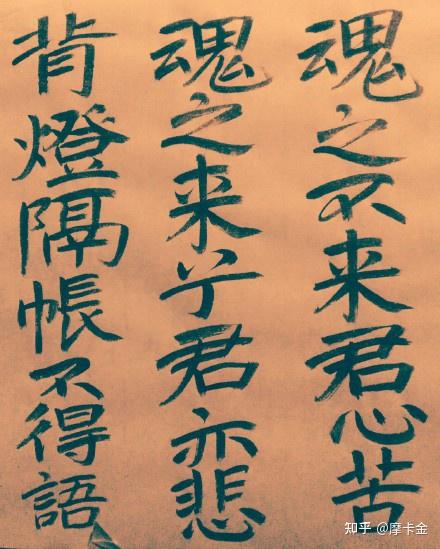 魂之不来君心苦
魂之来兮君亦悲
背燈隔帳不得語
知乎 @摩卡金